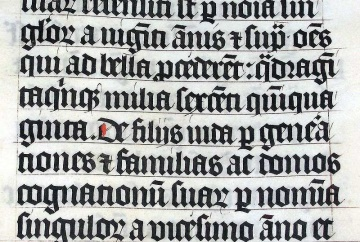 suar recensiti st p noīa sin
gl'or a uigīti ānis ⁊ sup͛ . oēs
qui ad bella pcederēt: q̄dragī
taq̄inq̢ milia sexcēti qīnqua
ginta. De filijs iuda p genera
tiones ⁊ familias ac domos
cognationū suar p nomīa
singulor a uicesimo āno et